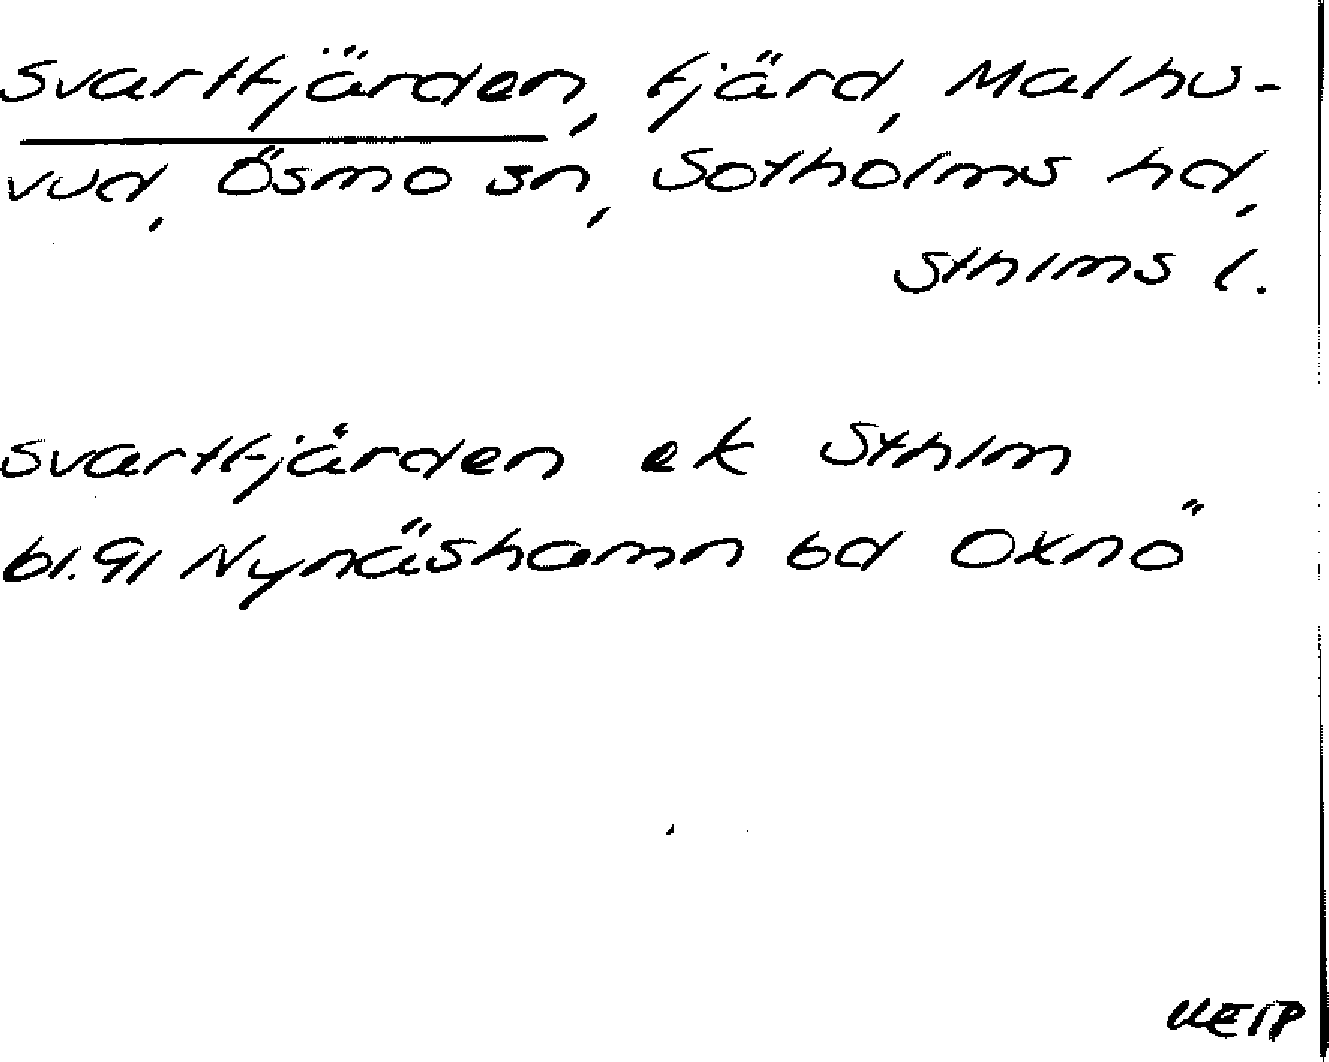 Svartfjärden, fjärd, Malhu-
vud, Ösmo sn, Sotholms hd,
Sthlms l.
Svartfjärden ek Sthlm
bl. 91 Nynäshamn bd Oxnö